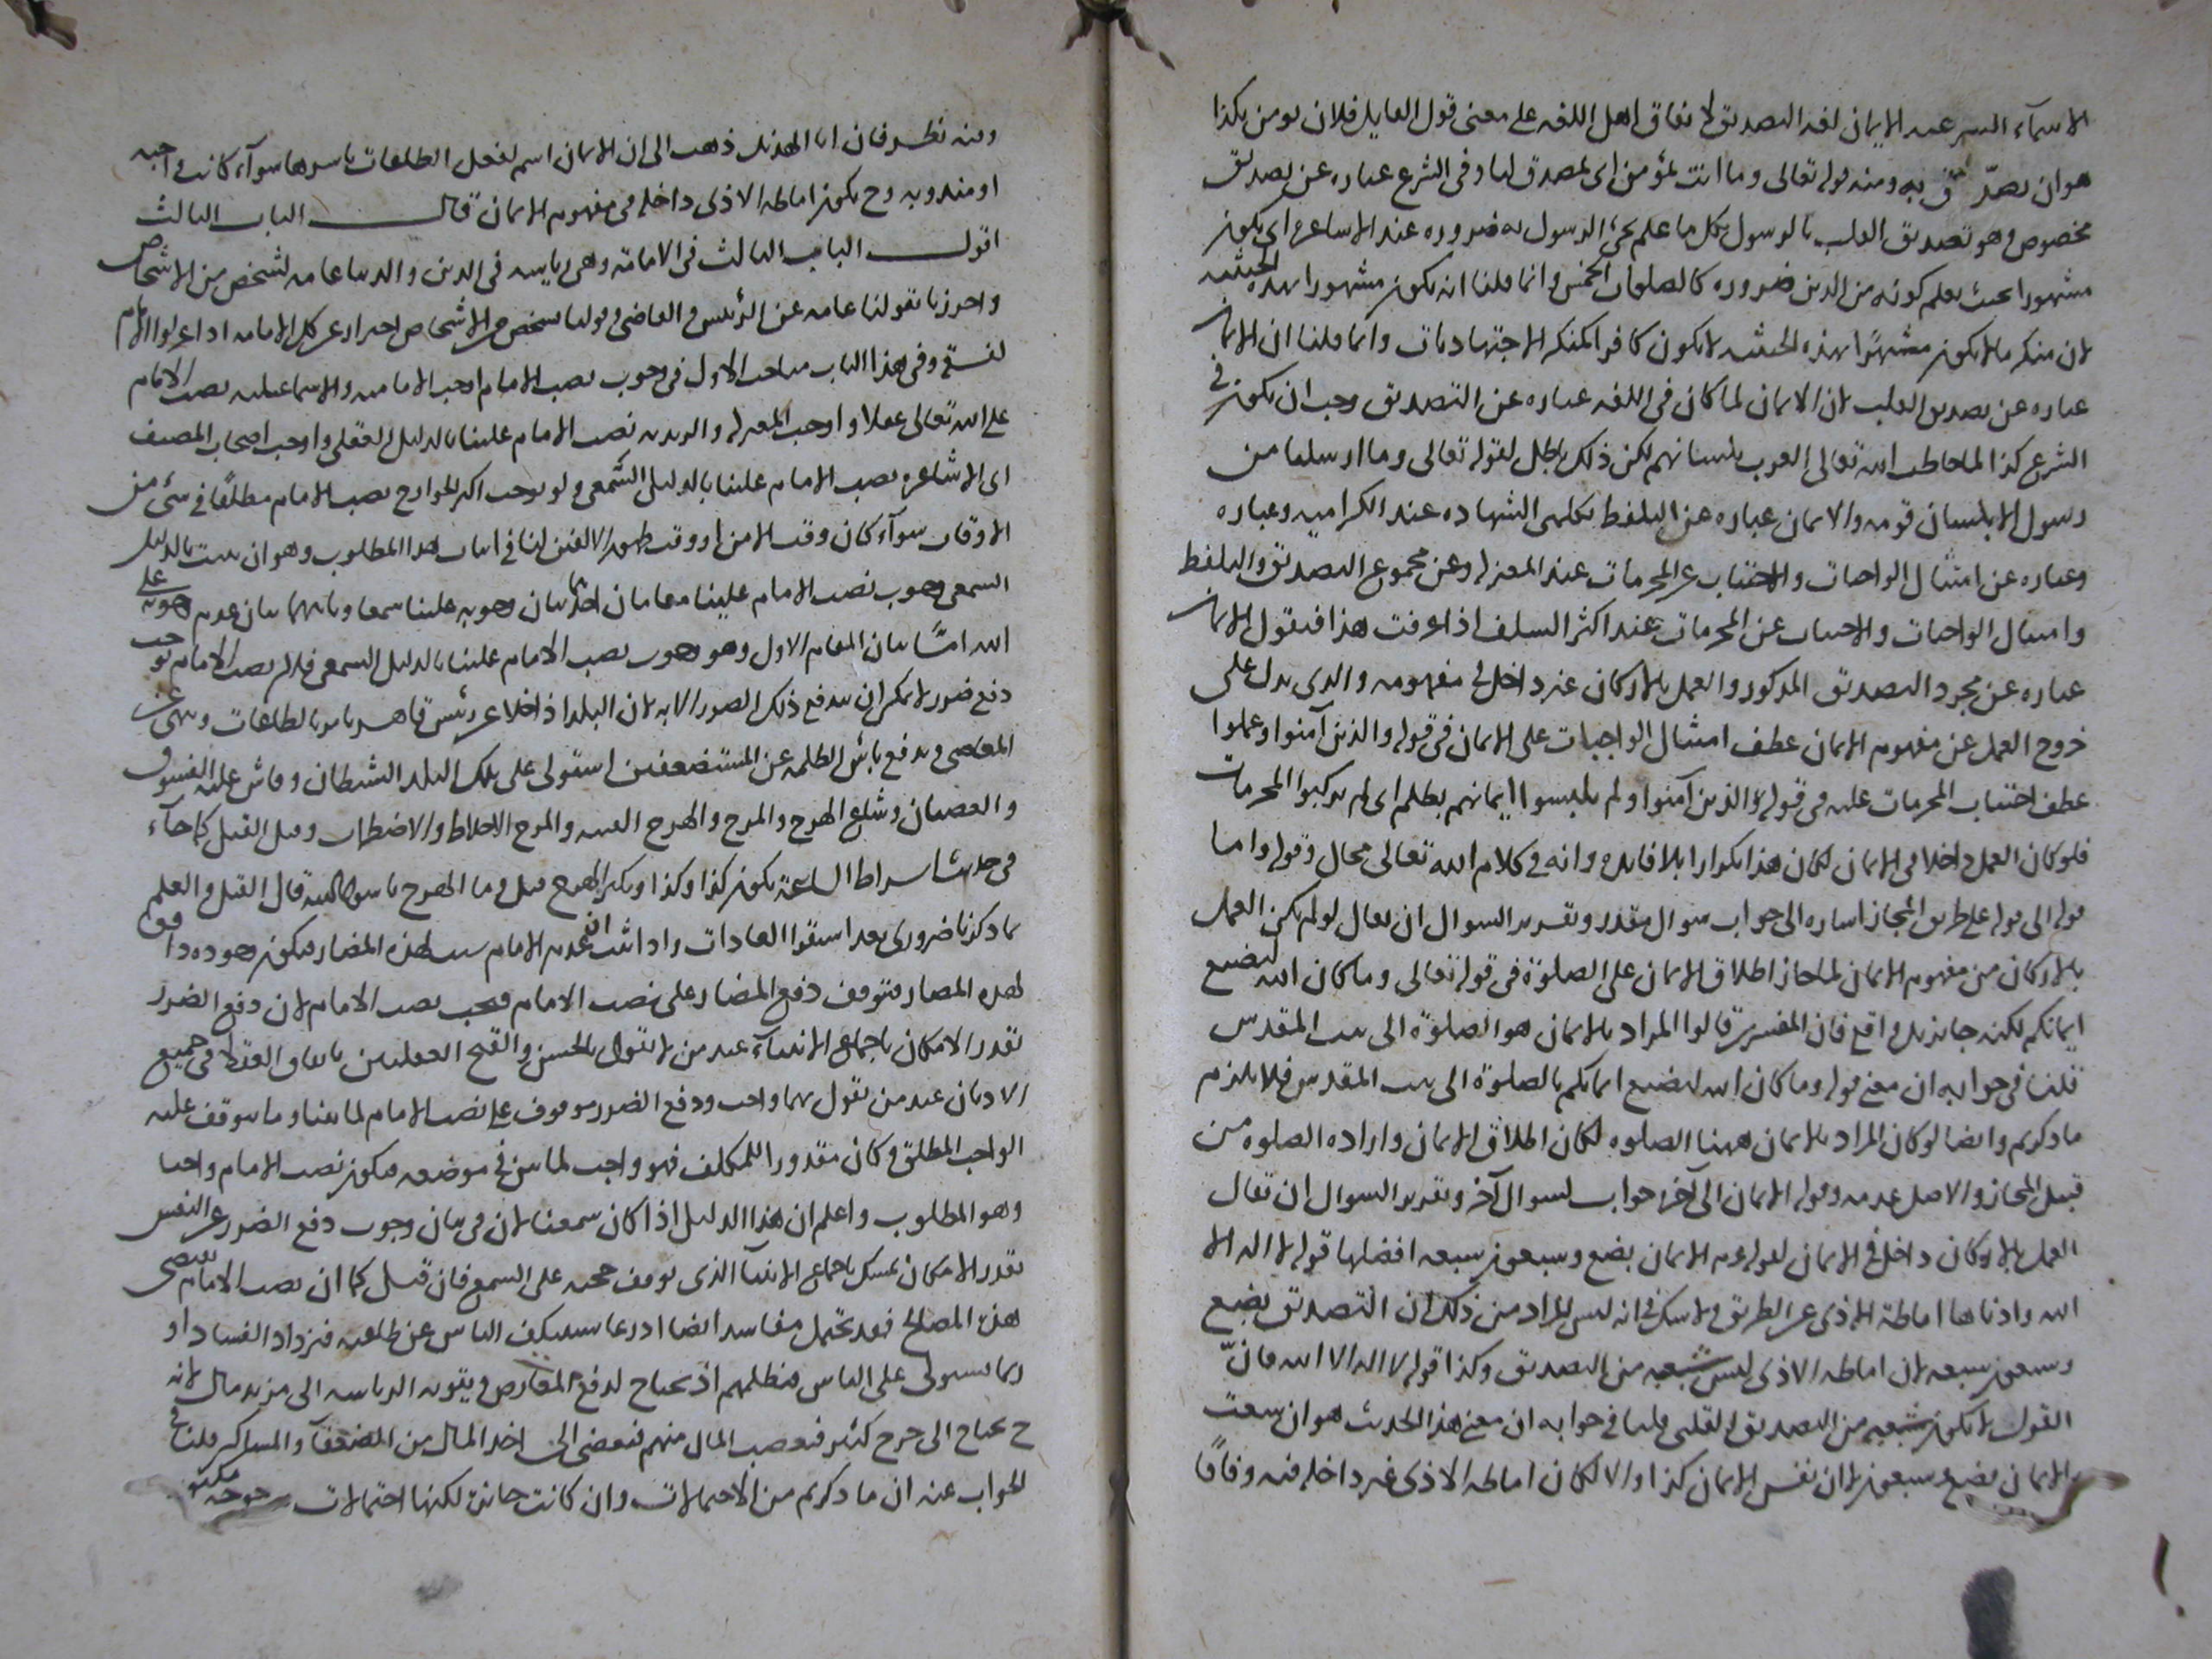 الاسماء الشرعيه الايمان لغه التصديق لاتفاق اهل اللغه على معنى قول القايل فلان يومن بكذا
هو ان يصدق به ومنه قوله تعالى وما انت بمؤمن اى بمصدق لنا وفى الشرع عباره عن تصديق
مخصوص وهو تصديق القلب بالرسول بكل ما علم مجئ الرسول به ضروره عند الاشاعره اى يكون
مشهورا بحيث يعلم كونه من الدين ضروره كالصلوات الخمس وانما قلنا انه يكون مشهورا بهذه الحيثيه
لان منكر ما لا يكون مشتهرًا بهذه الحيثيه لا يكون كافرا كمنكر الاجتهاديات وانما قلنا ان الايمان
عباره عن تصديق القلب لان الايمان لما كان فى اللغه عباره عن التصديق وجب ان يكون فى
الشرع كذا لما خاطب الله تعالى العرب بلسانهم لكن ذلك باطل لقوله تعالى وما ارسلنا من
رسول الا بلسان قومه والايمان عباره عن التلفظ بكلمتى الشهاده عند الكراميه وعباره
وعباره عن امتثال الواجبات والاجتناب عن المحرمات عند المعتزله وعن مجموع التصديق والتلفظ
وامتثال الواجبات والاجتناب عن المحرمات عند اكثر السلف اذا عرفت هذا فنقول الايمان
عباره عن مجرد التصديق المذكور والعمل بالاركان غير داخل فى مفهومه والذى يدل على
خروج العمل عن مفهوم الايمان عطف امتثال الواجبات على الايمان فى قوله والذين آمنوا وعملوا
عطف اجتناب المحرمات عليه فى قوله والذين آمنوا ولم يلبسوا ايمانهم بظلم اى لم يرتكبوا المحرمات
فلو كان العمل داخلا فى الايمان لكان هذا تكرارا بلا فايده وانه فى كلام الله تعالى محال وقوله واما
قوله الى قوله على طريق المجاز اشاره الى جواب سوال مقدر وتقرير السوال ان يقال لو لم يكن العمل
بالاركان من مفهوم الايمان لما جاز اطلاق الايمان على الصلوة فى قوله تعالى وما كان الله ليضيع
ايمانكم لكنه جايز بل واقع فان المفسرين قالوا المراد بالايمان هو الصلوة الى بيت المقدس
قلنا فى جوابه ان معنى قوله وما كان الله ليضيع ايمانكم بالصلوة الى بيت المقدس فلا يلزم
ما ذكرتم وايضا لو كان المراد بالايمان ههنا الصلوه لكان اطلاق الايمان واراده الصلوه من
قبيل المجاز والاصل عدمه وقوله الايمان الى آخره جواب لسوال آخر وتقرير السوال ان يقال
العمل بالاركان داخل فى الايمان لقوله عم الايمان بضع وسبعون شعبه افضلها قول لا اله الا
الله وادناها اماطة الاذى عن الطريق ولا شك فى انه ليس المراد من ذلك ان التصديق بضع
وسبعون شعبه لان اماطه الاذى ليس شعبه من التصديق وكذا قول لا اله الا الله فانّ
القول لا يكون شعبه من التصديق القلبى قلنا فى جوابه ان معنى هذا الحديث هو ان شعب
الايمان بضع وسبعون لا ان نفس الايمان كذا والا لكان اماطه الاذى غير داخله فيه وفاقًا
وفيه نظر فان ابا الهذيل ذهب الى ان الايمان اسم لفعل الطاعات باسرها سوآء كانت واجبه
او مندوبه وح يكون اماطه الاذى داخله فى مفهوم الايمان قال الباب الثالث
اقول الباب الثالث فى الامامة وهى رياسه فى الدين والدنيا عامه لشخص من الاشخاص
واحترز بقولنا عامه عن الرئيس والقاضى وقولنا لشخص من الاشخاص احتراز عن كل الامه اذا عزلوا الامام
لفسقه وفى هذا الباب مباحث الاول فى وجوب نصب الامام اوجب الاماميه والاسماعيليه نصب الامام
على الله تعالى عقلا واوجب المعتزله والزيديه نصب الامام علينا بالدليل العقلى واوجب اصحاب المصنف
اى الاشاعره نصب الامام علينا بالدليل السّمعى ولم يوجب اكثر الخوارج نصب الامام مطلقًا فى شئ من
الاوقات سوآء كان وقت الامن او وقت ظهور الفتن لنا فى اثبات هذا المطلوب وهو ان يثبت بالدليل
السمعى وجوب نصب الامام علينا مقامان احدهما بيان وجوبه علينا سمعا وثانيهما بيان عدم وجوبه على
الله امّا بيان المقام الاول وهو وجوب نصب الامام علينا بالدليل السمعى فلان نصب الامام يوجب
دفع ضرر لا يمكن ان يندفع ذلك الضرر الا به لان البلد اذا خلا عن رئيس قاهر يامر بالطاعات وينهى عن
المعاصى ويدفع باس الظلمه عن المستضعفين استولى على تلك البلد الشيطان وفاش عليه الفسوق
والعصيان وشاع الهرج والمرج والهرج الفتنه والمرج الاختلاط والاضطراب وقيل القتل كما جآء
فى حديث اشراط الساعة يكون كذا وكذا ويكثر الهرج قيل وما الهرج يا رسول الله قال القتل والعلم
بما ذكرنا ضرورى بعد استقراء العادات واذا ثبت ان عدم الامام سبب لهذه المضار فيكون وجوده دافعا
لهذه المضار فيتوقف دفع المضار على نصب الامام فيجب نصب الامام لان دفع الضرر
بقدر الامكان باجماع الانبيآء عند من لا يقول بالحسن والقبح العقليين باتفاق العقلا فى جميع
الاديان عند من يقول بهما واجب ودفع الضرر موقوف على نصب الامام لما بينا وما يتوقف عليه
الواجب المطلق وكان مقدورا للمكلف فهو واجب لما بين فى موضعه فيكون نصب الامام واجبا
وهو المطلوب واعلم ان هذا الدليل اذا كان سمعيا لان فى بيان وجوب دفع الضرر عن النفس
بقدر الامكان تمسك باجماع الانبيآ الذى توقف حجيته على السمع فان قيل كما ان نصب الامام يقتضى
هذه المصالح فقد يحتمل مفاسد ايضا اذ ربما يستنكف الناس عن طاعته فيزداد الفساد او
ربما يستولى على الناس فيظلمهم او يحتاج لدفع المعارض وتقويه الرياسه الى مزيد مال لانه
ح يحتاج الى خرج كثير فيغصب المال منهم فيفضى الى اخذ المال من الضعفآ والمساكين قلنا فى
الجواب عنه ان ما ذكرتم من الاحتمالات وان كانت جائزة لكنها احتمالات مرجوحه